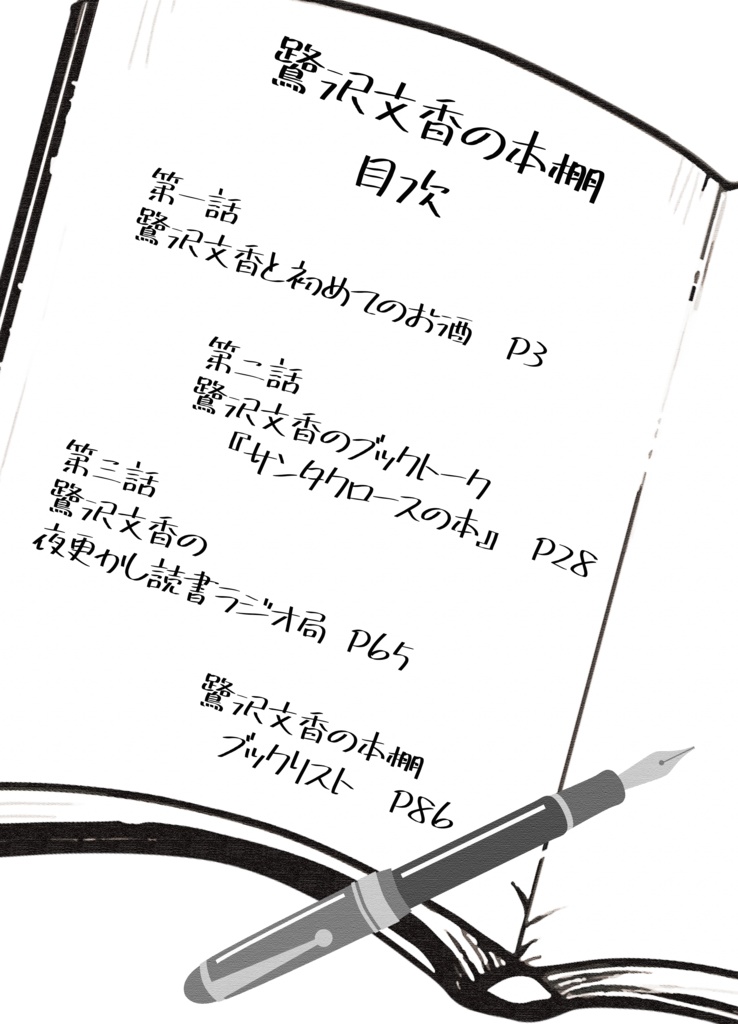 鷺沢文香の本棚
目次
第一話
鷺沢文香と初めてのお酒 P3
第二話
鷺沢文香のブックトーク
『サンタクロースの本』 P28
第三話
鷺沢文香の
夜更かし読書ラジオ局 P65
鷺沢文香の本棚
ブックリスト P86